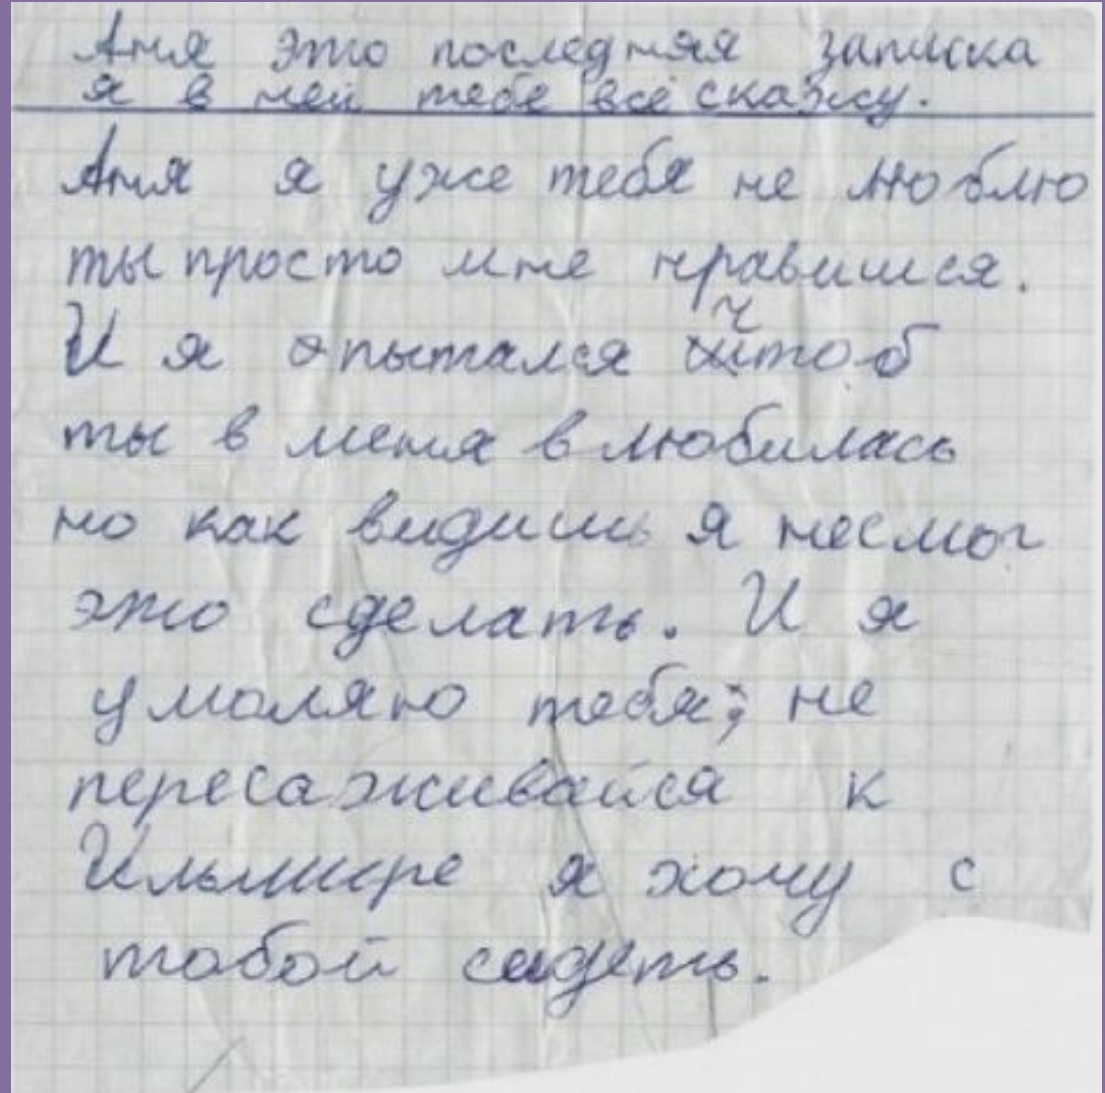 Аня это последняя записка
я в ней тебе всё скажу.
Аня я уже тебя не люблю
ты просто мне нравишся.
И я опытался чтоб
ты в меня влюбилась
но как видишь я несмог
это сделать. И я
умоляю тебя; не
пересаживайся к
я хочу с
тобой сидеть.